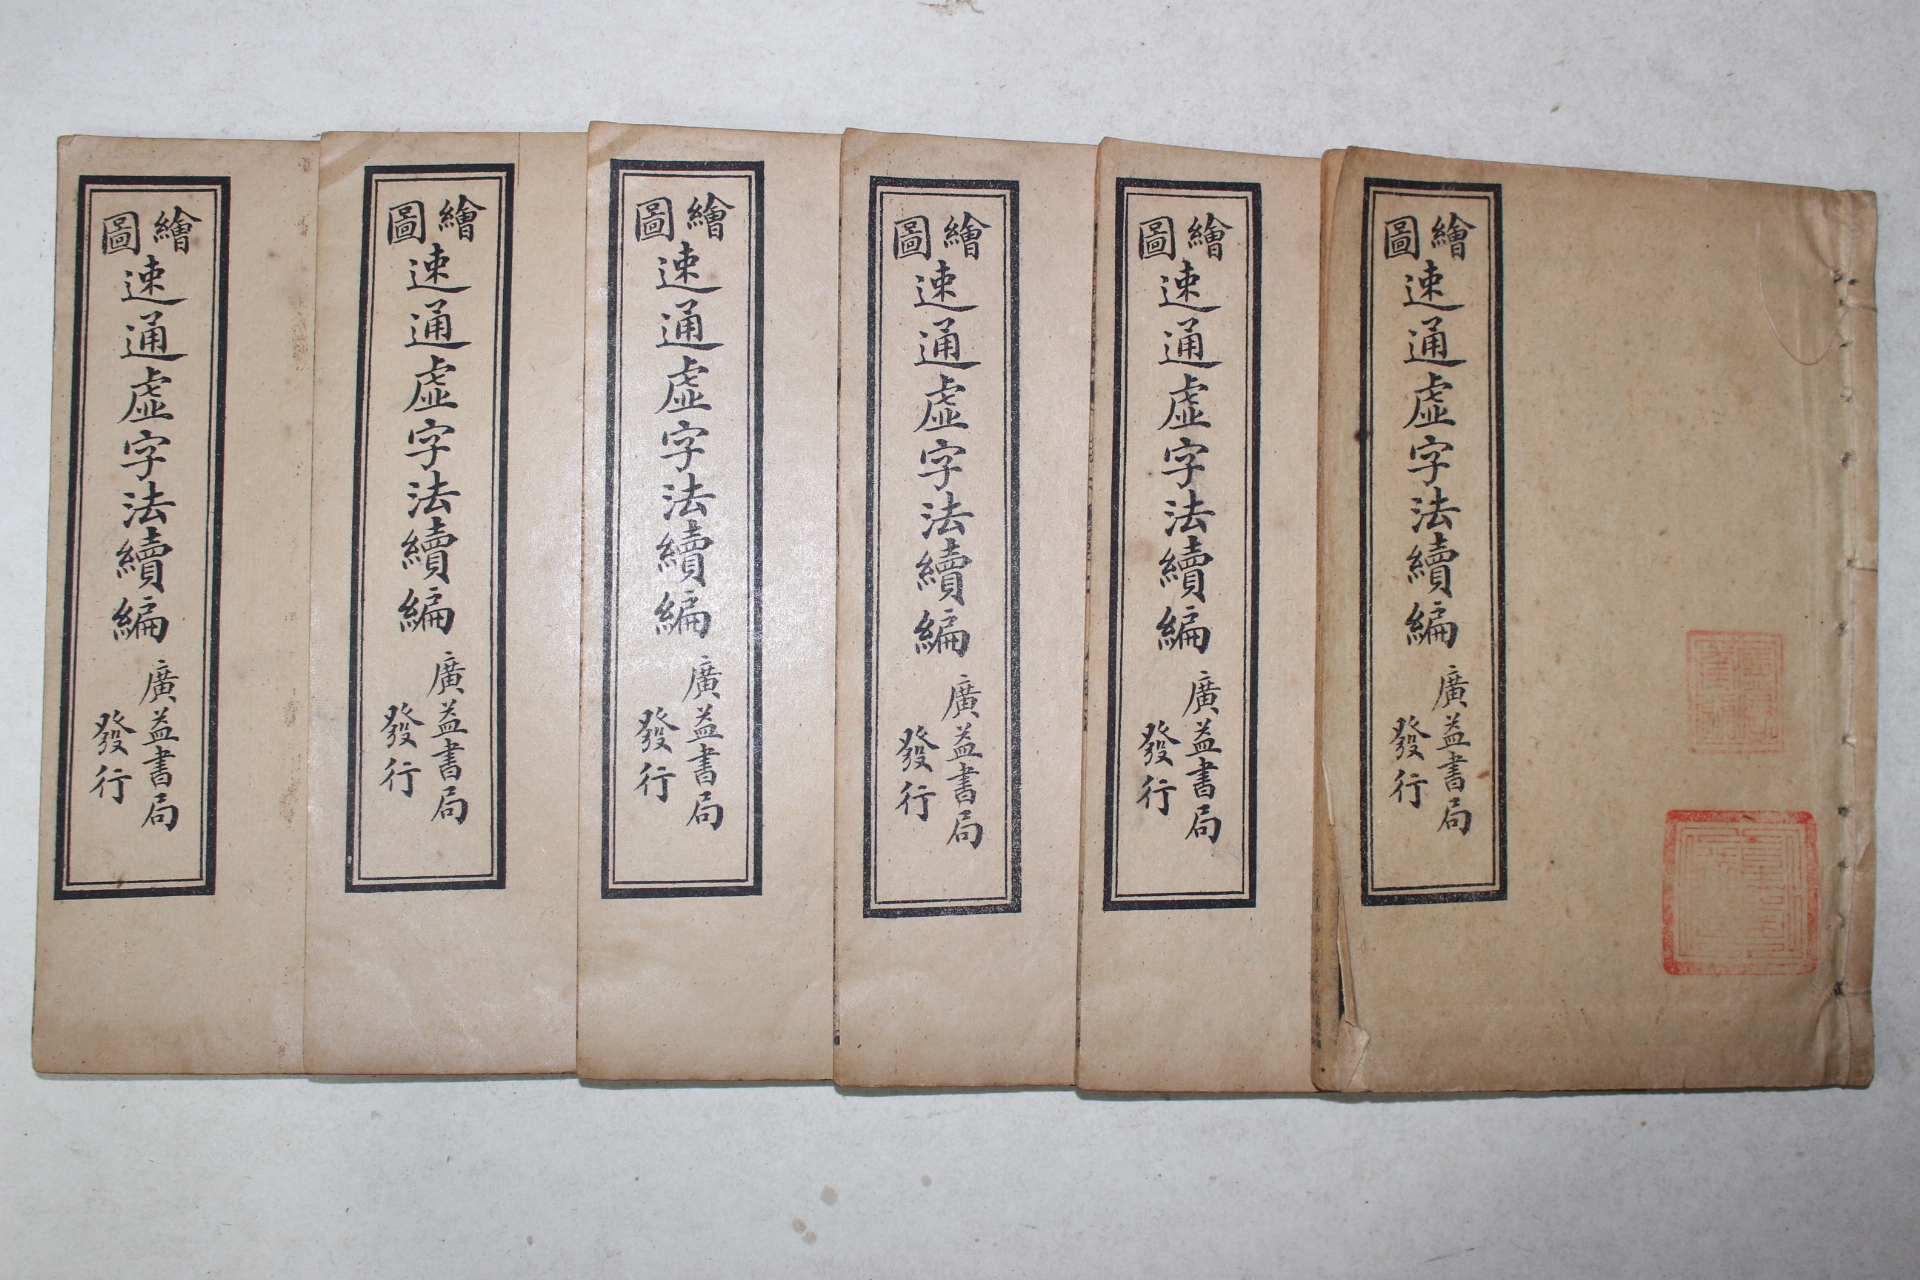 繪圖速通虛字法續編
廣益書局
發行
繪圖速通虛字法續編
廣益書局
發行
繪圖速通虛字法續編
廣益書局
發行
繪圖速通虛字法續編
廣益書局
發行
繪圖速通虛字法續編
廣益書局
發行
繪圖速通虛字法續編
廣益書局
發行